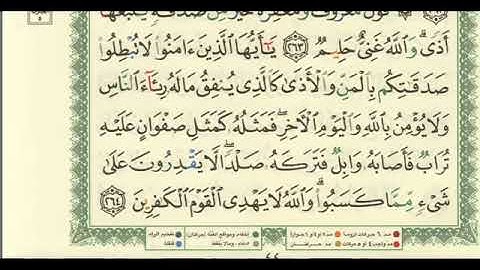 قَوْلٌ مَّعْرُوفٌ وَمَغْفِرَةٌ خَيْرٌ مِّن صَدَقَةٍ يَتْبَعُهَآ
أَذًى ۗ وَٱللَّهُ غَنِىٌّ حَلِيمٌ ﴿٢٦٣﴾ يَـٰٓأَيُّهَا ٱلَّذِينَ ءَامَنُوا۟ لَا تُبْطِلُوا۟
صَدَقَـٰتِكُم بِٱلْمَنِّ وَٱلْأَذَىٰ كَٱلَّذِى يُنفِقُ مَالَهُۥ رِئَآءَ ٱلنَّاسِ
وَلَا يُؤْمِنُ بِٱللَّهِ وَٱلْيَوْمِ ٱلْـَٔاخِرِ ۖ فَمَثَلُهُۥ كَمَثَلِ صَفْوَانٍ عَلَيْهِ
تُرَابٌ فَأَصَابَهُۥ وَابِلٌ فَتَرَكَهُۥ صَلْدًا ۖ لَّا يَقْدِرُونَ عَلَىٰ
شَىْءٍ مِّمَّا كَسَبُوا۟ ۗ وَٱللَّهُ لَا يَهْدِى ٱلْقَوْمَ ٱلْكَـٰفِرِينَ ﴿٢٦٤﴾